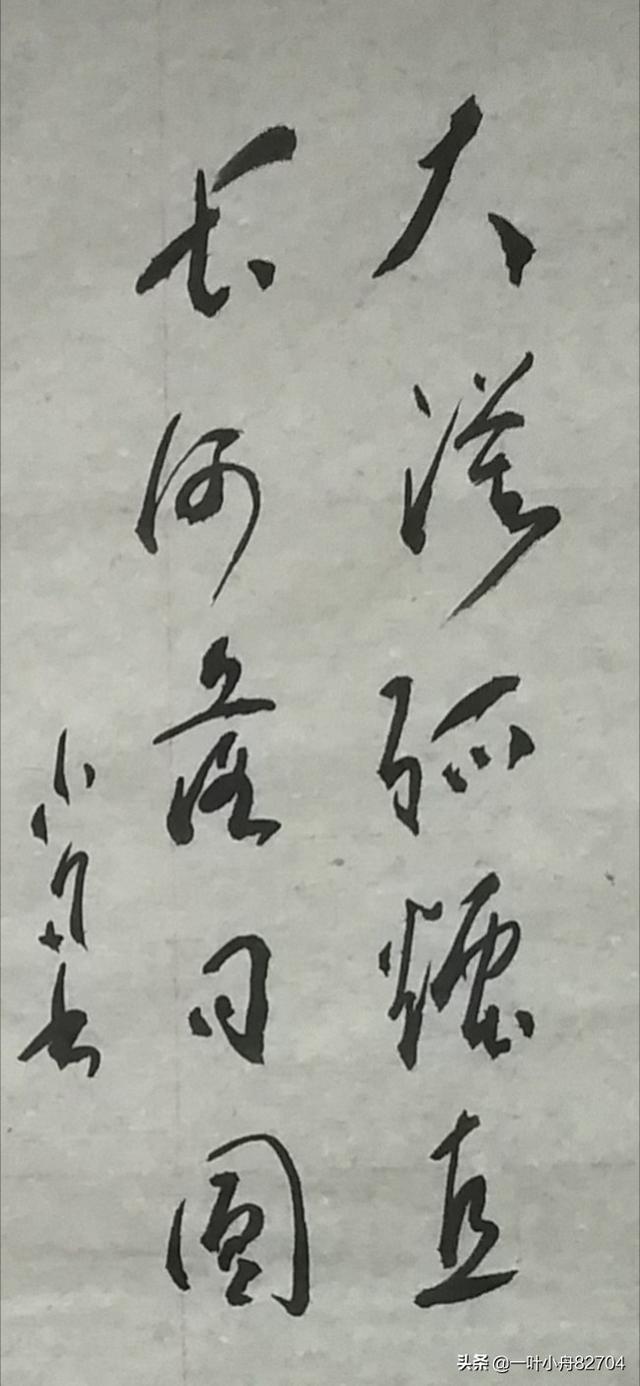 大漠孤煙直
长河落日圆
小舟书
头条 @一叶小舟82704